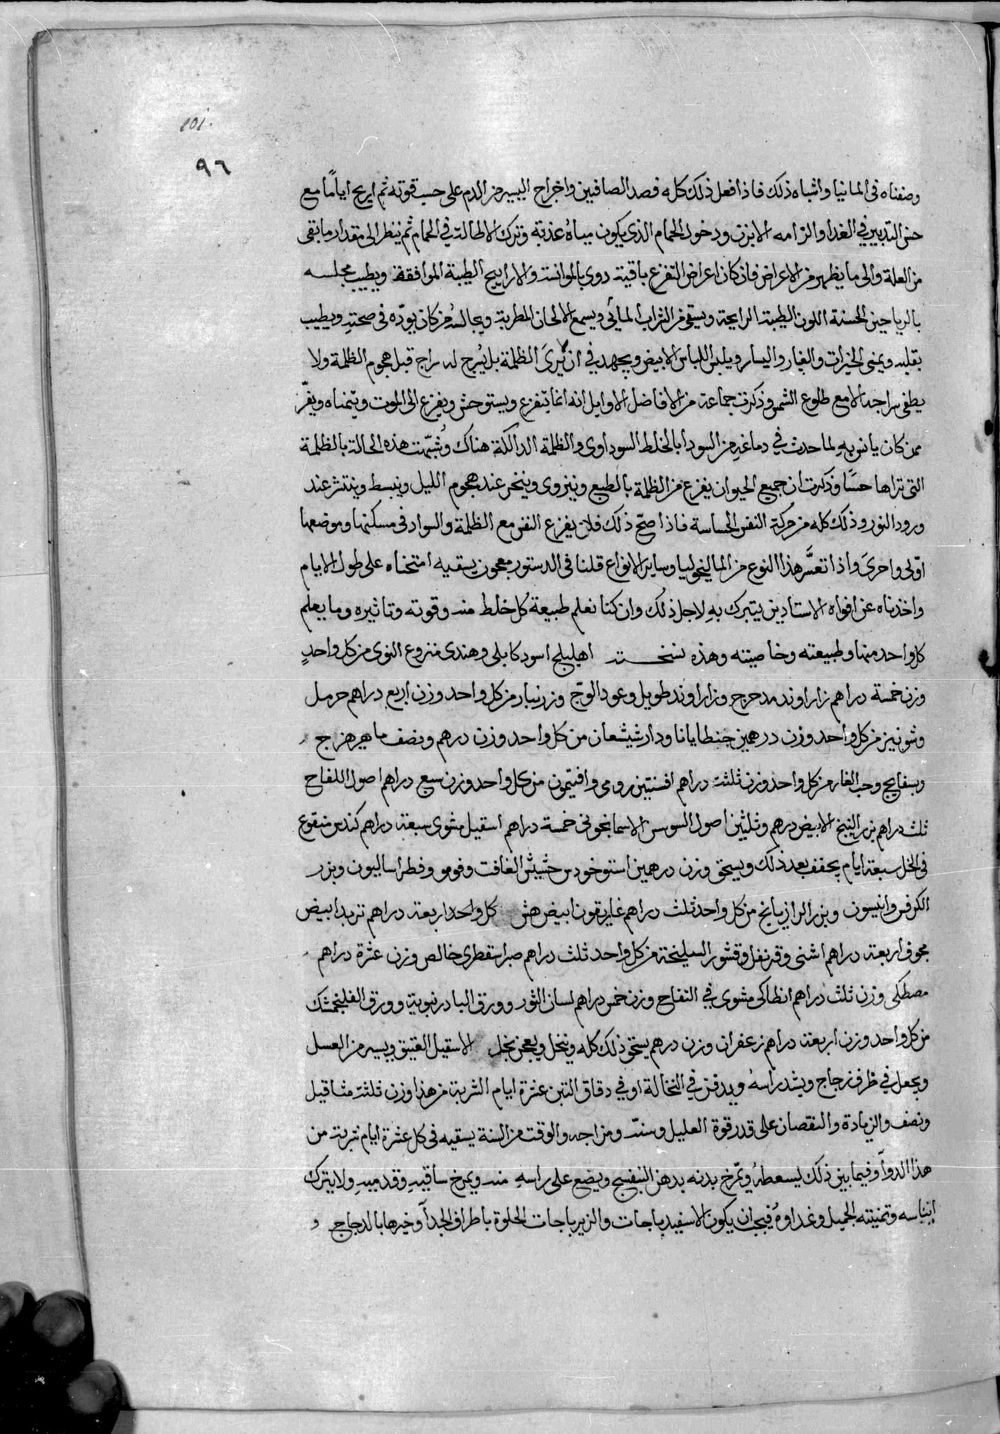 101.
٩٦
وصفناه في المانيا واشباه ذلك فاذا فعل ذلك كله فصد الصافنين واخراج اليسير من الدم على حسب قوته ثم اريح اياما مع
حسن التدبير في الغدا والزامه الابزن ودخول الحمام الذي يكون مياه عذبة وترك الاطالة في الحمام ثم ينظر الى مقدار ما بقى
من العلة والى ما يظهر من الاعراض فان كان اعراض التفزع باقية دوى بالموانسة والاراييح الطيبة الموافقة ويطيب مجلسه
بالرياحين الحسنة اللون الطيبة الرايحة ويسقى من الشراب المائى ويسمع الالحان المطربة ويجالسه من كان يوده في صحته ويطيب
بقلبه ويمنى الخيرات والغيار واليسار ويلبس اللباس الابيض ويجهد في ان لا يرى الظلمة بل يسرج له سراج قبل هجوم الظلمة ولا
يطفى سراجه الا مع طلوع الشمس وذكرت جماعة من الافاضل الاوايل انه انما يتفزع ويستوحش ويفزع الى الموت ويتمناه ويفر
ممن كان يانس به لما حدث في دماغه من السودا بالخلط السوداوى والظلمة الداكنة هناك وشبهت هذه الحالة بالظلمة
التى نراها حسا وذكرت ان جميع الحيوان يفزع من الظلمة بالطبع وينزوى وينجحر عند هجوم الليل وينبسط وينتشر عند
ورود النور وذلك كله من حركة النفس الحساسة فاذا صح ذلك فلان يفزع النفس مع الظلمة والسواد في مسكنها وموضعها
اولى واحرى واذا تعسر هذا النوع من الماليخوليا وساير الانواع قلنا في الدستور معجون يسقيه امتحناه على طول الايام
واخذناه عن افواه الاستاذين يتبرك به لاجل ذلك وان كنا نعلم طبيعة كل خلط منه وقوته وتاثيره وما يعلم
كل واحد منها وطبيعته وخاصيته وهذه نسخته اهليلج اسود كابلى وهندى منزوع النوى من كل واحد
وزن خمسة دراهم زراوند مدحرج وزراوند طويل وعود الوج وزرنباد من كل واحد وزن اربع دراهم حرمل
وشونيز من كل واحد وزن درهمين جنطايانا ودار شيشعان من كل واحد وزن درهم ونصف ماهيزهرج
وبسفايج وحب الغار من كل واحد وزن ثلثة دراهم افسنتين رومى وافتيمون من كل واحد وزن سبع دراهم اصول اللفاح
ثلث دراهم بزر البنج الابيض درهم وثلثين اصول السوسن الاسمانجونى خمسة دراهم اسقيل مشوى سبعة دراهم كندس منقوع
في الخل سبعة ايام يجفف بعد ذلك ويسحق وزن درهمين استوخودس حشيش الغافت وفومو وفطراساليون وبزر
الكرفس وانيسون وبزر الرازيانج من كل واحد ثلث دراهم غاريقون ابيض هش كل واحد اربعة دراهم تربد ابيض
مجوف اربعة دراهم اشنى وقرنفل وقشور السليخة من كل واحد ثلث دراهم صبر اسقطرى خالص وزن عشرة دراهم
مصطكى وزن ثلث دراهم انطاكى مشوى في التفاح وزن خمس دراهم لسان الثور وورق البادرنبوية وورق الفلنجمشك
من كل واحد وزن اربعة دراهم زعفران وزن درهم يسحق ذلك كله وينخل ويعجن بخل الاسقيل العتيق ويسير من العسل
ويجعل في ظرف زجاج ويشد راسه ويدفن في النخالة او في دقاق التبن عشرة ايام الشربة من هذا وزن ثلثة مثاقيل
ونصف والزيادة والنقصان على قدر قوة العليل وسنه ومزاجه والوقت من السنة يسقيه في كل عشرة ايام شربة من
هذا الدواء وفيما بين ذلك يسعطه ويمرخ بدنه بدهن البنفسج ويضع على راسه منه ويمرخ ساقيه وقدميه ولا يترك
ايناسه وتمنيته الجميل وغداوه فيجب ان يكون الاسفيدباجات والزيرباجات الحلوة باطراف الجداء وخيرها بالدجاج و